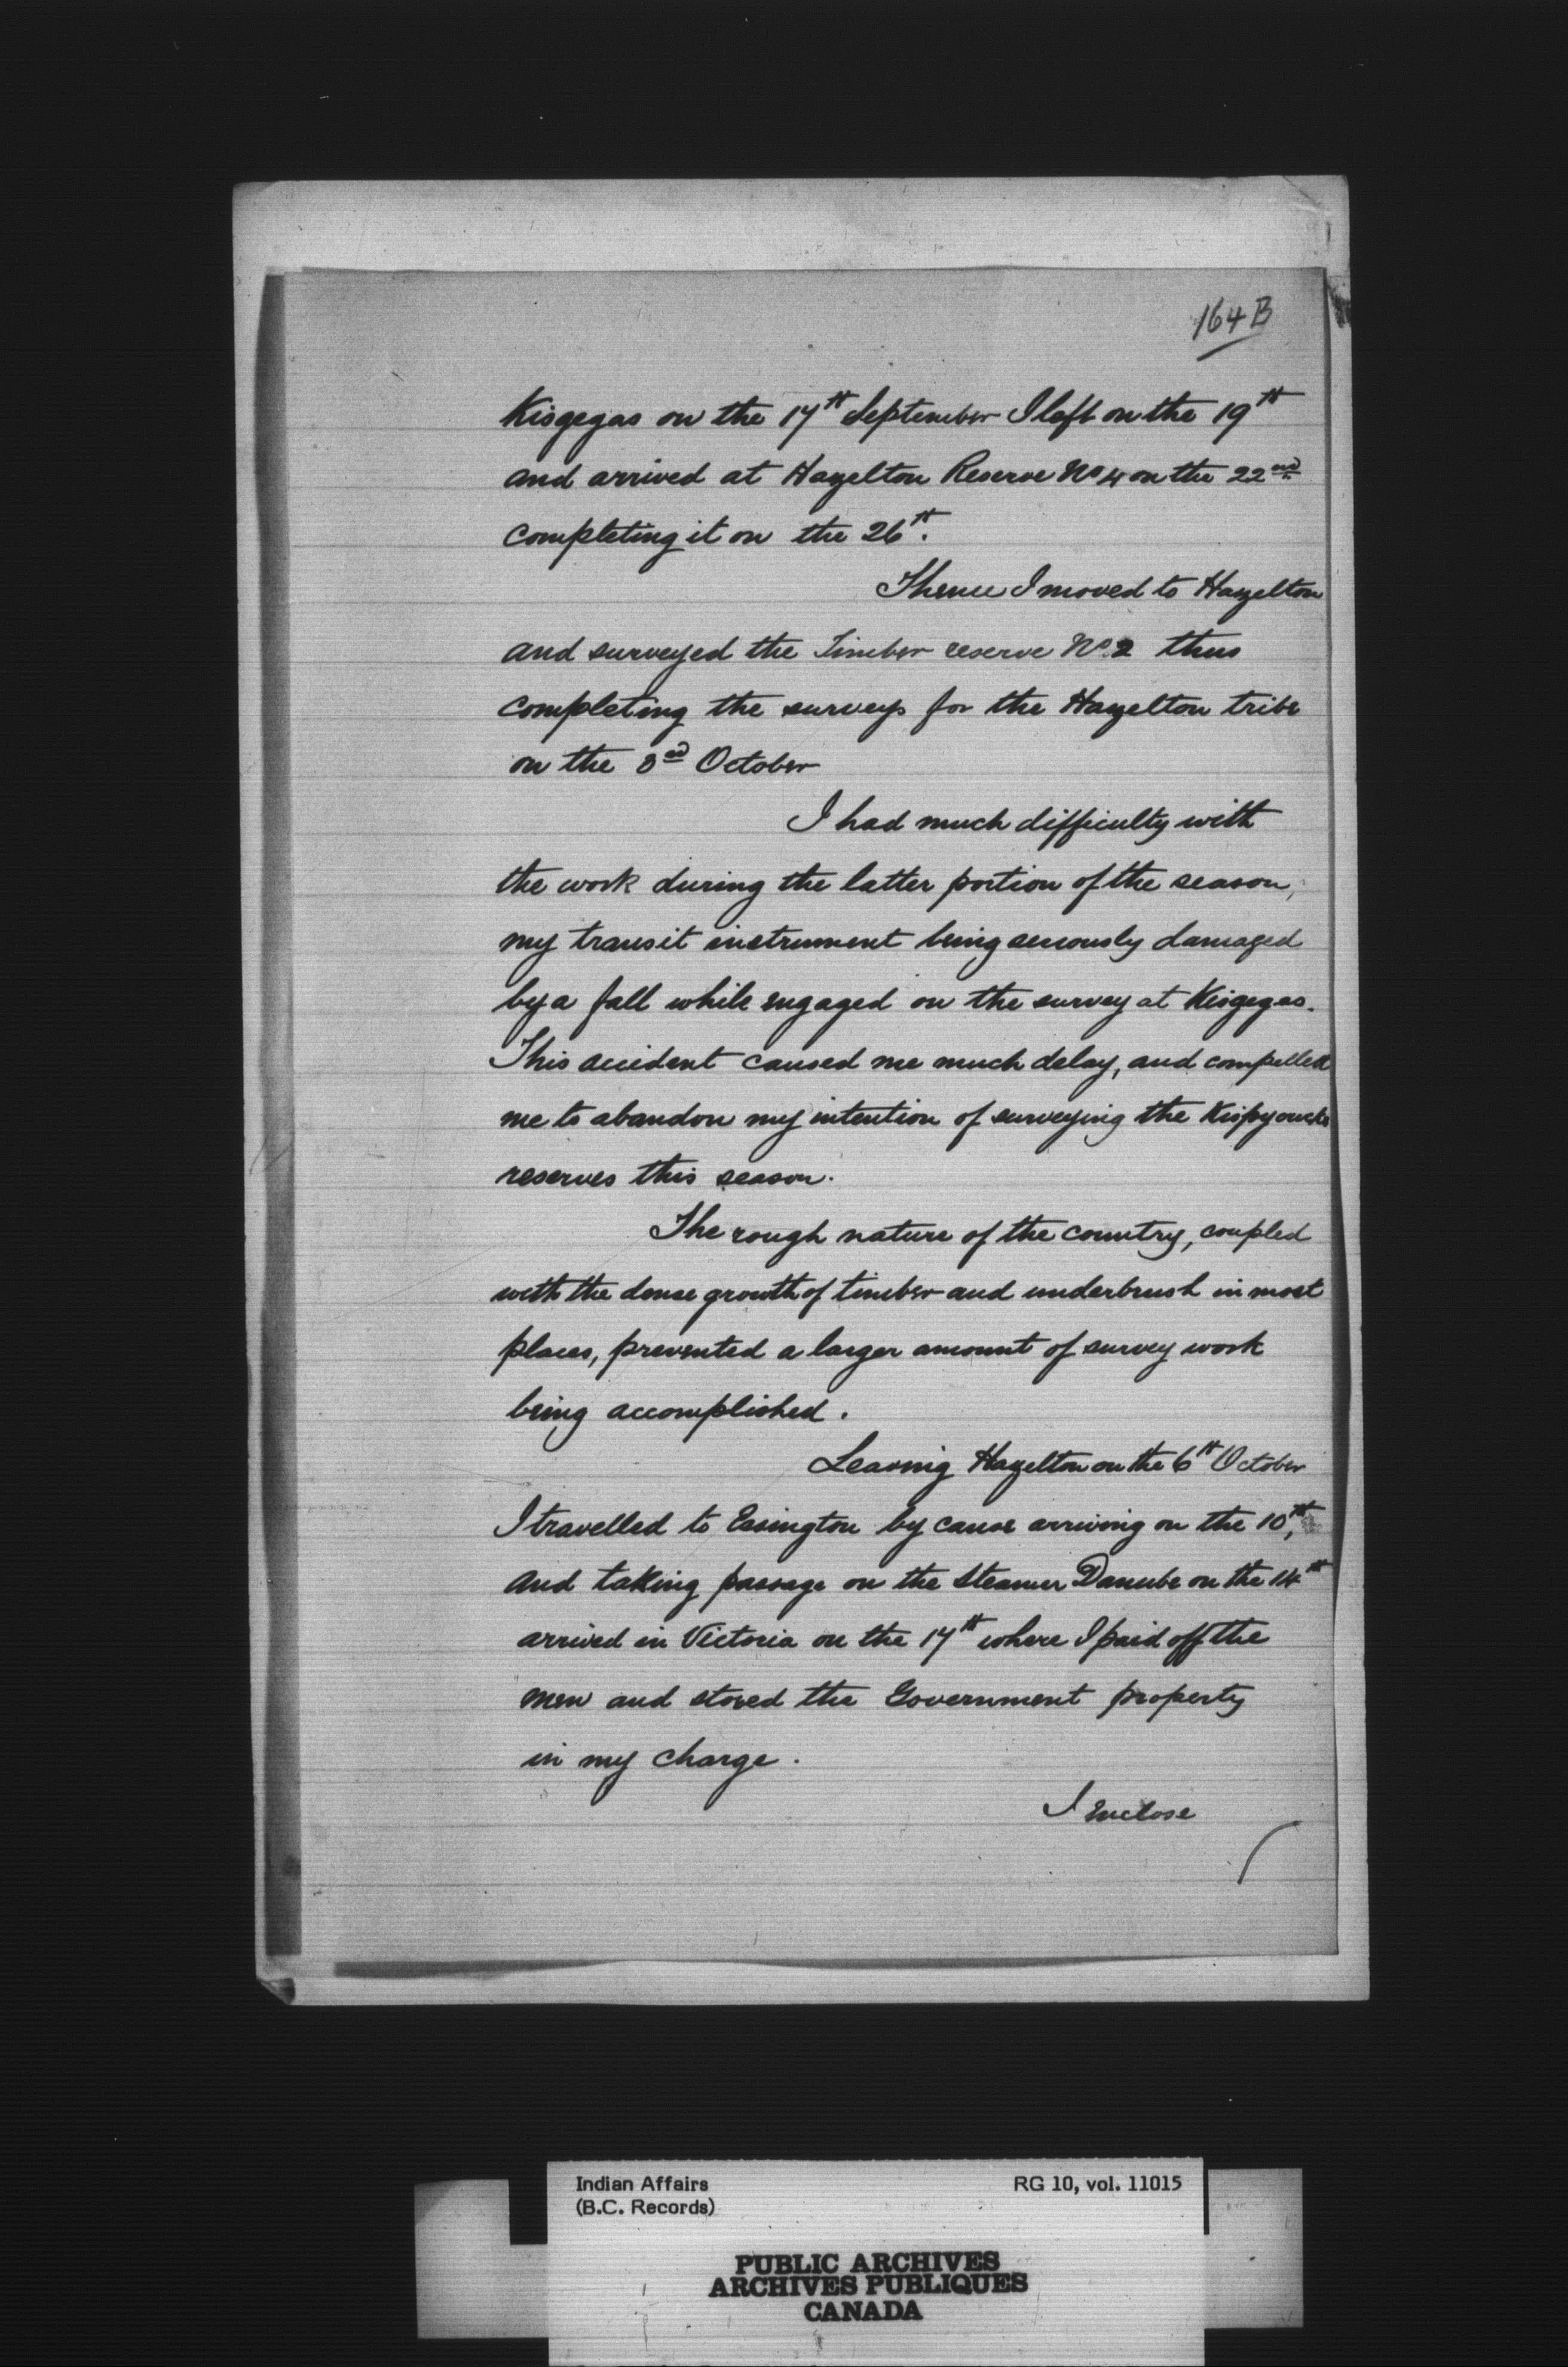 164 B
Kisgegas on the 17th September I left on the 19th
and arrived at Hazelton Reserve No 4 on the 22nd
completing it on the 26th.
Thence I moved to Hazelton
and surveyed the Timber reserve No. 2 thus
completing the surveys for the Hazelton tribe
on the 3rd October
I had much difficulty with
the work during the latter portion of the season,
my transit instrument being seriously damaged
by a fall while engaged on the survey at Kisgegas.
This accident caused me much delay, and compelled
me to abandon my intention of surveying the
reserves this season.
The rough nature of the country, coupled
with the dense growth of timber and underbrush in most
places, prevented a larger amount of survey work
being accomplished.
Leaving Hazelton on the 6th October
I travelled to Essington by canoe arriving on the 10th,
and taking passage on the Steamer Danube on the 14th
arrived in Victoria on the 17th where I paid off the
men and stored the Government property
in my charge.
I Enclose
Indian Affairs RG 10, vol. 11015
(B.C. Records)
PUBLIC ARCHIVES
ARCHIVES PUBLIQUES
CANADA